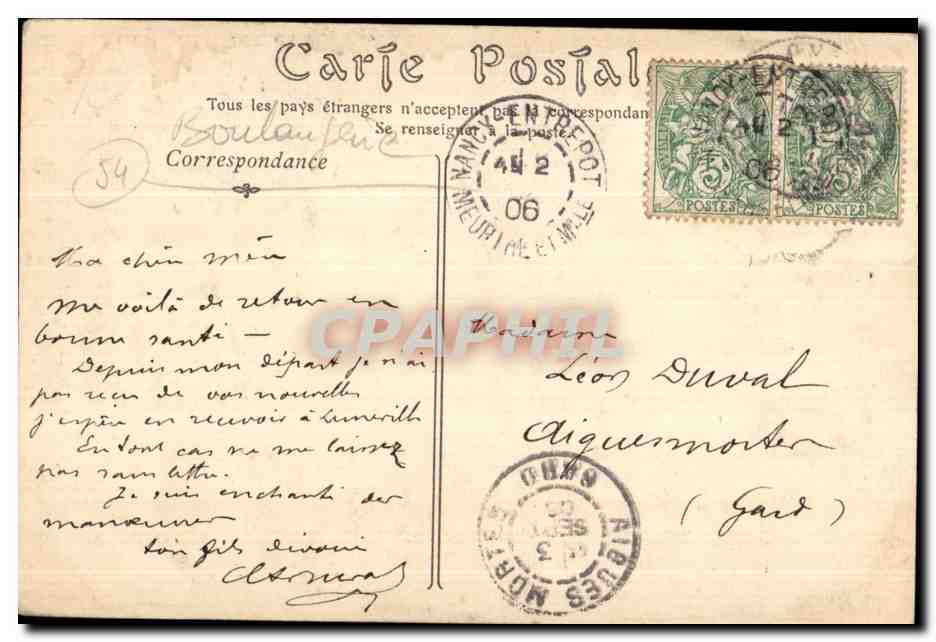 Carte Postale
Tous les pays étrangers n'acceptent pas la correspondan
Se renseigner à la poste.
Boulangerie
54
Correspondance
NANCY-ENTREPOT
2
06
MEURTHE ET MLLE
NANCY-ENTREPOT
2
06
5c
POSTES
POSTES
Ma chère mère
me voilà de retour en
bonne santé —
Depuis mon départ je n'ai
pas reçu de vos nouvelles
j'espère en recevoir à Lunéville
En tout cas ne me laissez
pas sans lettre.
Je suis enchanté des
manœuvres
ton fils dévoué
CPAPHIL
Madame
Léon Duval
Aiguesmortes
(Gard)
AIGUES MORTES
GARD
3
SEPT